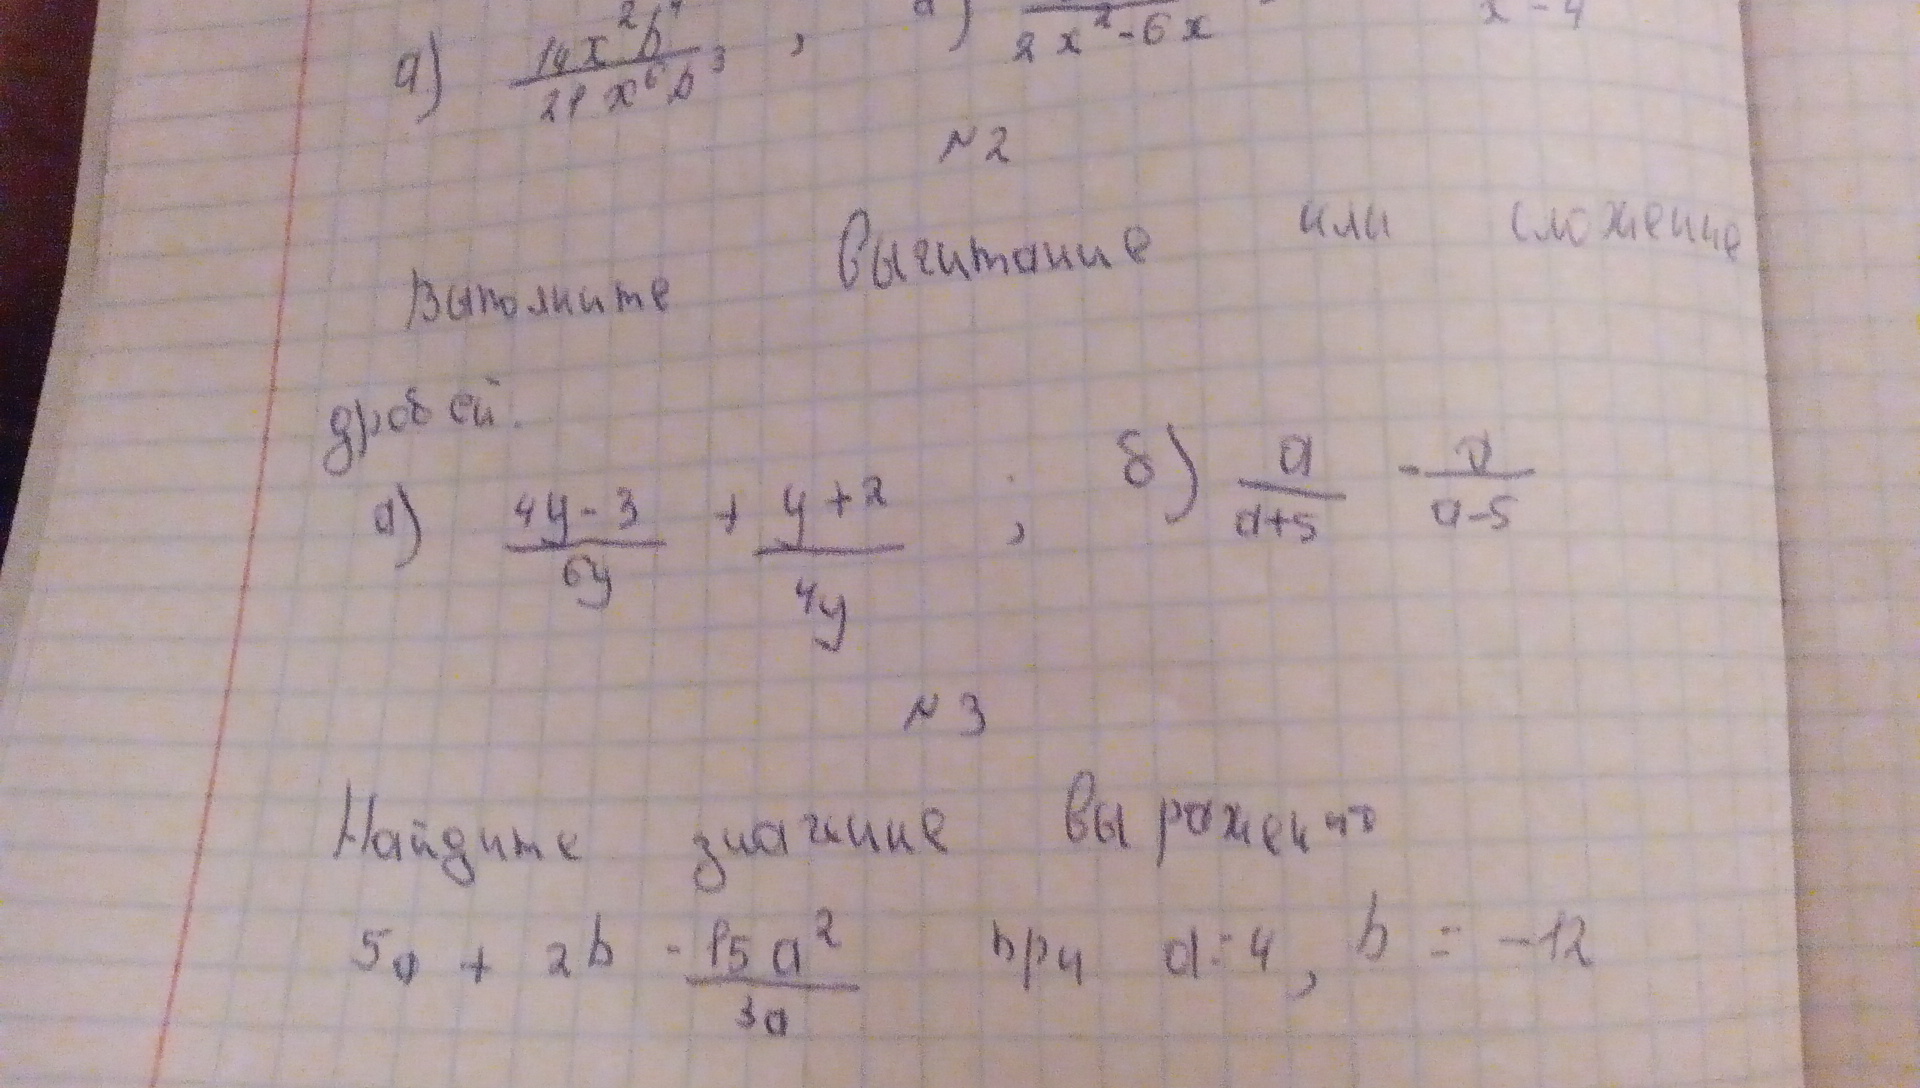 а) 14x²b⁴/21x⁶b³ , 2x²-6x x-4
№2
Выполните вычитание или сложение
дробей.
а) 4y-3/6y + y+2/4y ; б) a/a+5 - a/a-5
№3
Найдите значение выражения
5a + 2b - 15a²/3a при a=4, b = -12